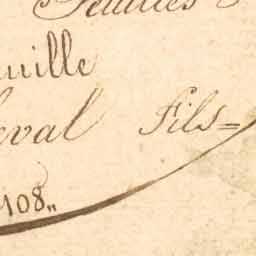 Feuilles
uille
eval Fils=
108„